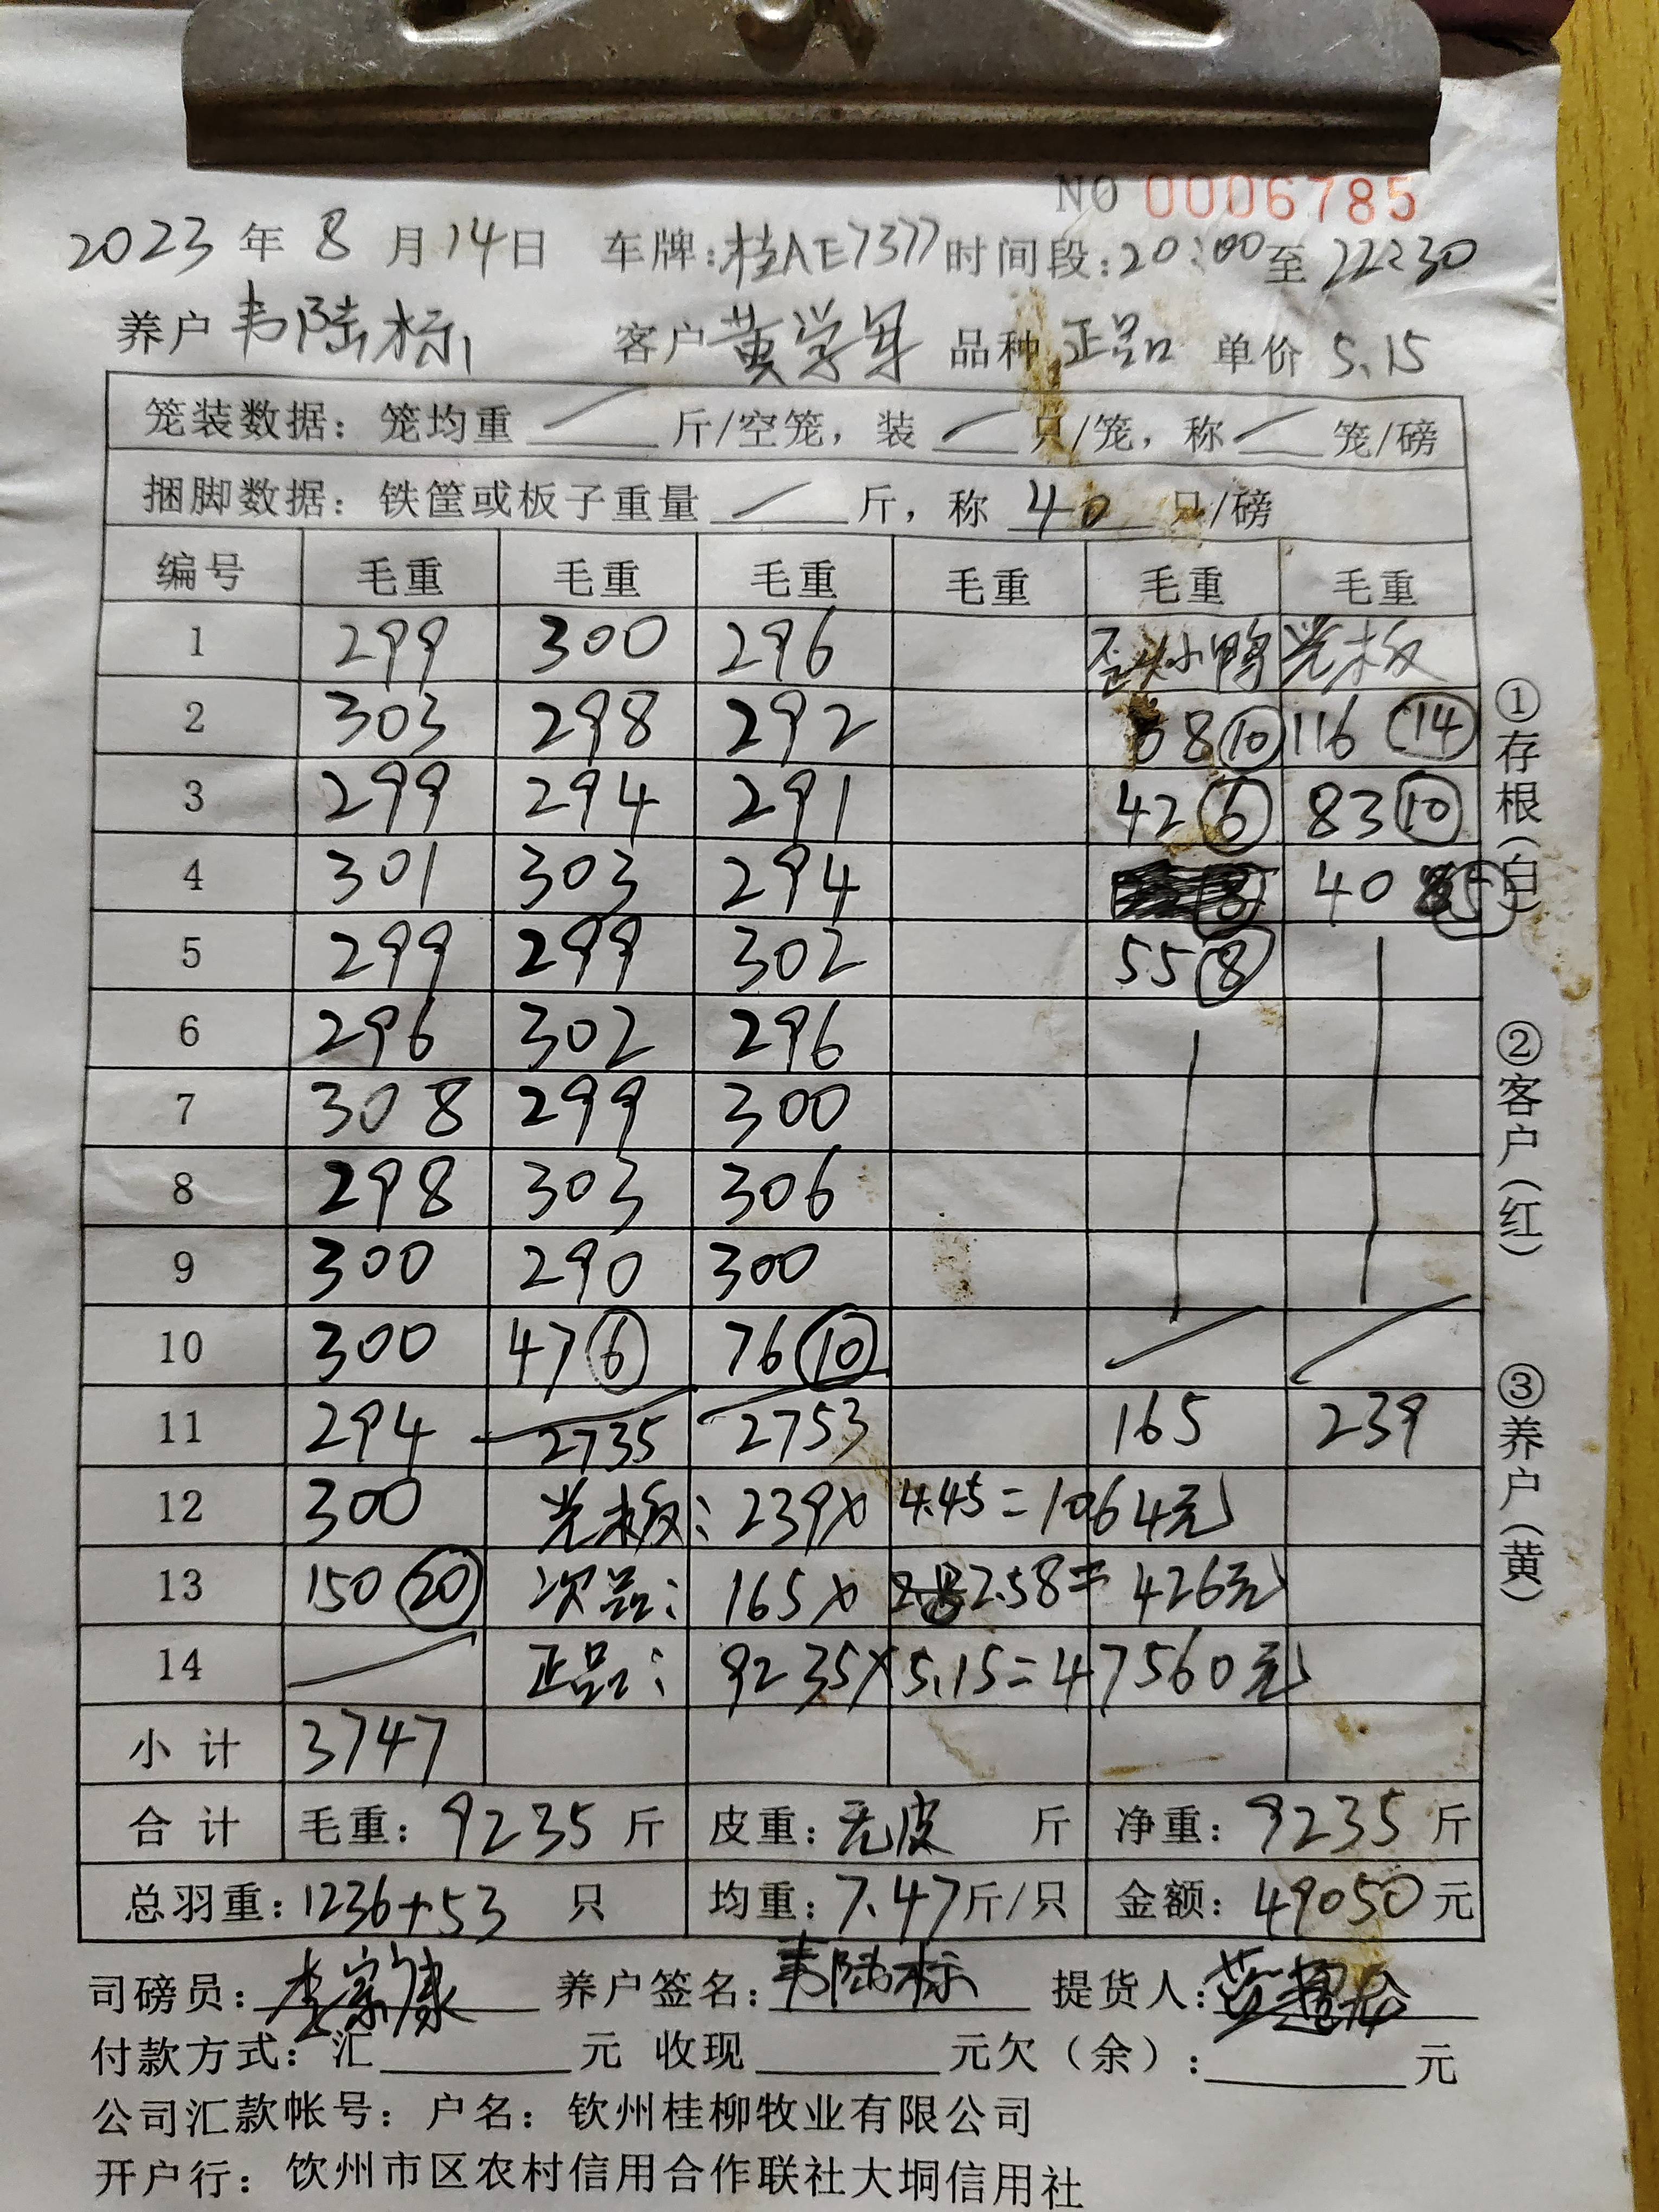 NO 0006785
2023 年 8 月 14 日 车牌:桂AE7377 时间段:20:00 至 22:30
养户 韦陆标 客户 黄学军 品种 正品 单价 5.15
笼装数据: 笼均重 / 斤/空笼, 装 / 只/笼, 称 / 笼/磅
捆脚数据: 铁筐或板子重量 / 斤, 称 40 只/磅
编号 毛重 毛重 毛重 毛重 毛重 毛重
1 299 300 296 歪头小鸭 光板
2 303 298 292 68 ⑩ 116 ⑭
3 299 294 291 42 ⑥ 83 ⑩
4 301 303 294 40 ⑤
5 299 299 302 55 ⑧
6 296 302 296
7 308 299 300
8 298 303 306
9 300 290 300
10 300 47 ⑥ 76 ⑩
11 294 2735 2753 165 239
12 300 光板: 239× 4.45=1064元
13 150 ⑳ 次品: 165× 2.58= 426元
14 正品: 9235×5.15=47560元
小 计 3747
合 计 毛重: 9235 斤 皮重: 无皮 斤 净重: 9235 斤
总羽重: 1236+53 只 均重: 7.47 斤/只 金额: 49050 元
司磅员: 李宗康 养户签名: 韦陆标 提货人:
付款方式: 汇 元 收现 元欠(余): 元
公司汇款帐号: 户名: 钦州桂柳牧业有限公司
开户行: 钦州市区农村信用合作联社大垌信用社
①存根(白)
②客户(红)
③养户(黄)